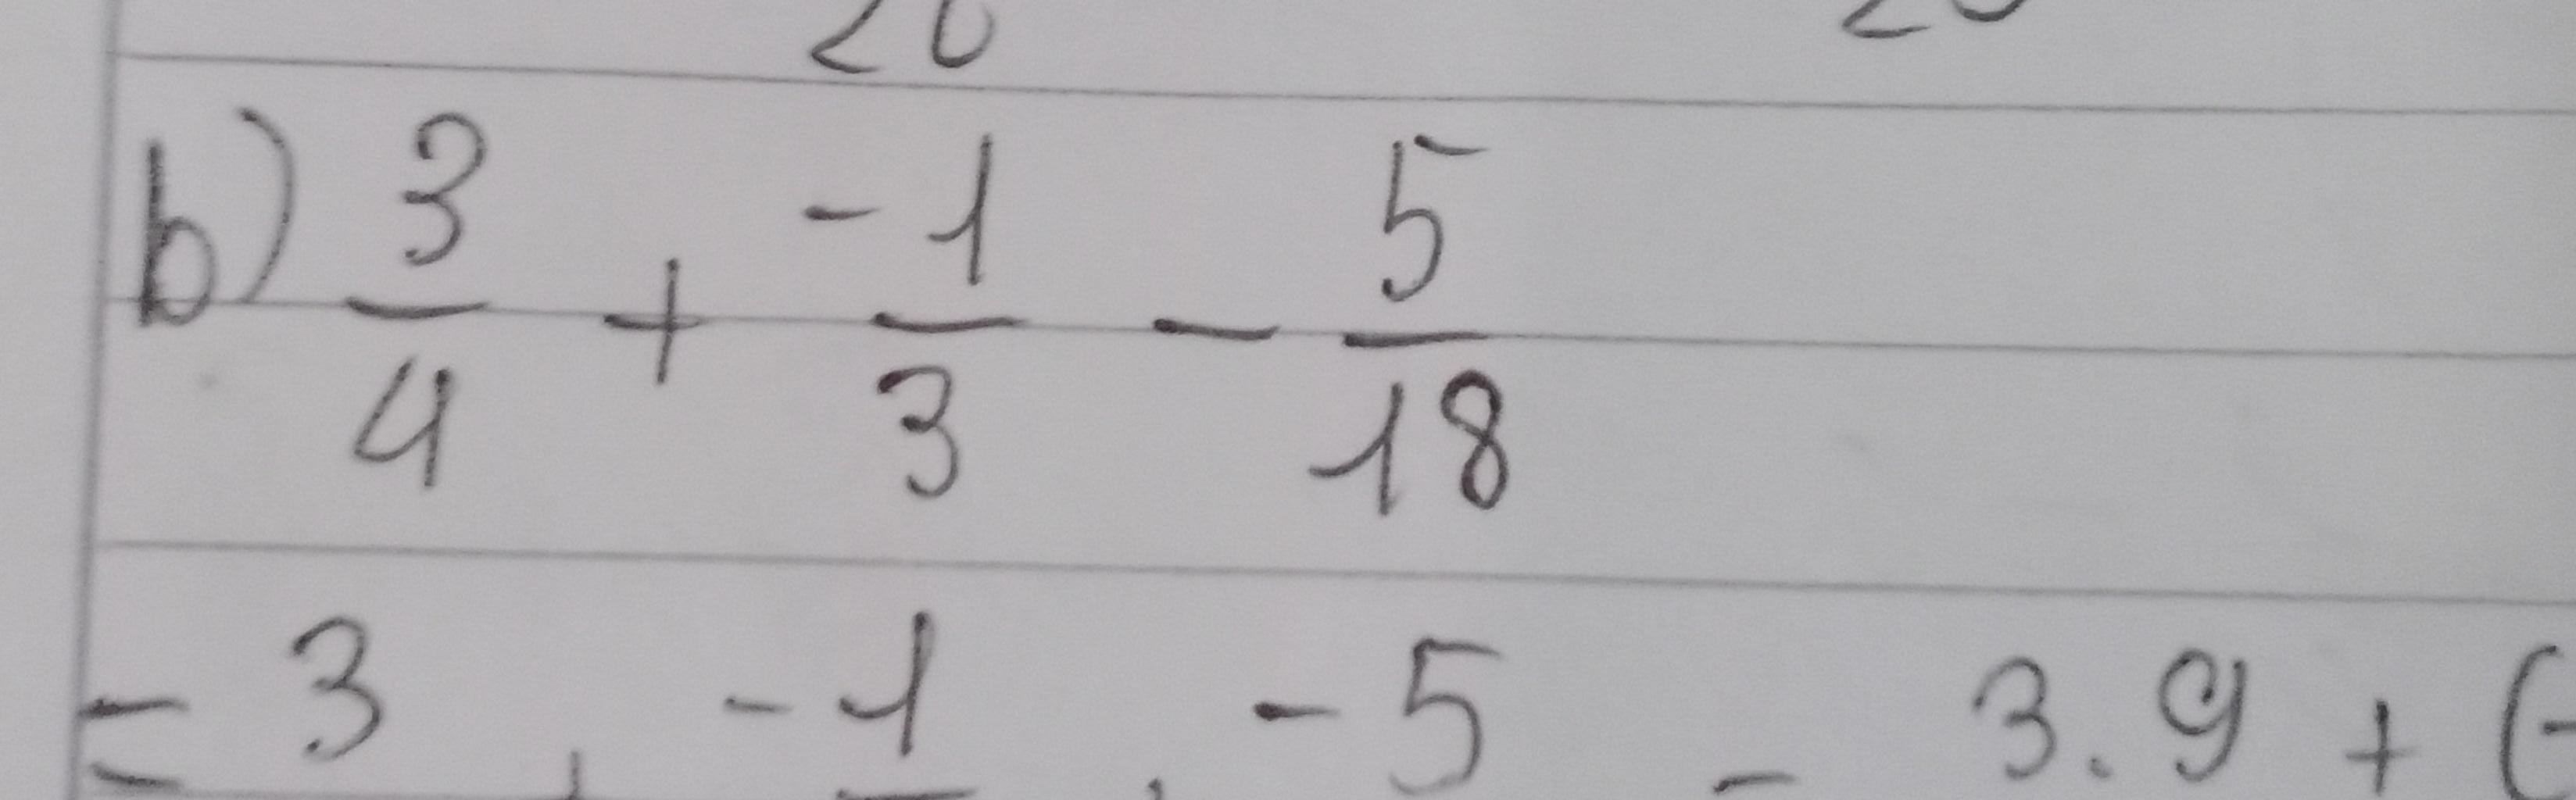 20 20
b) 3/4 + -1/3 - 5/18
= 3 + -1 + -5 = 3.9 + (-